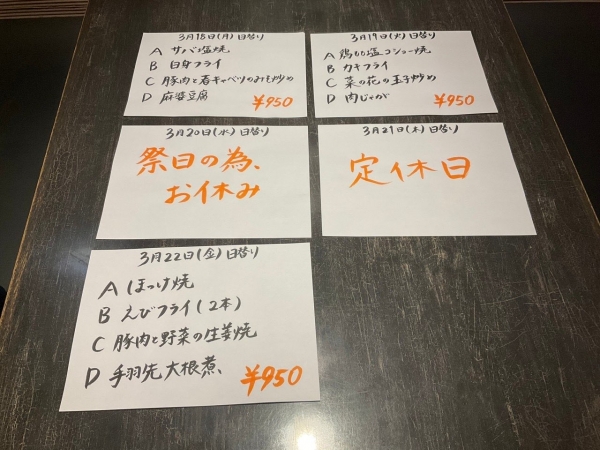 3月18日(月)日替り
A サバ塩焼
B 白身フライ
C 豚肉と春キャベツのみそ炒め
D 麻婆豆腐
¥950
3月19日(火)日替り
A 鶏もも塩コショー焼
B カキフライ
C 菜の花の玉子炒め
D 肉じゃが
¥950
3月20日(水)日替り
祭日の為、
お休み
3月21日(木)日替り
定休日
3月22日(金)日替り
A ほっけ焼
B えびフライ(2本)
C 豚肉と野菜の生姜焼
D 手羽先大根煮、
¥950